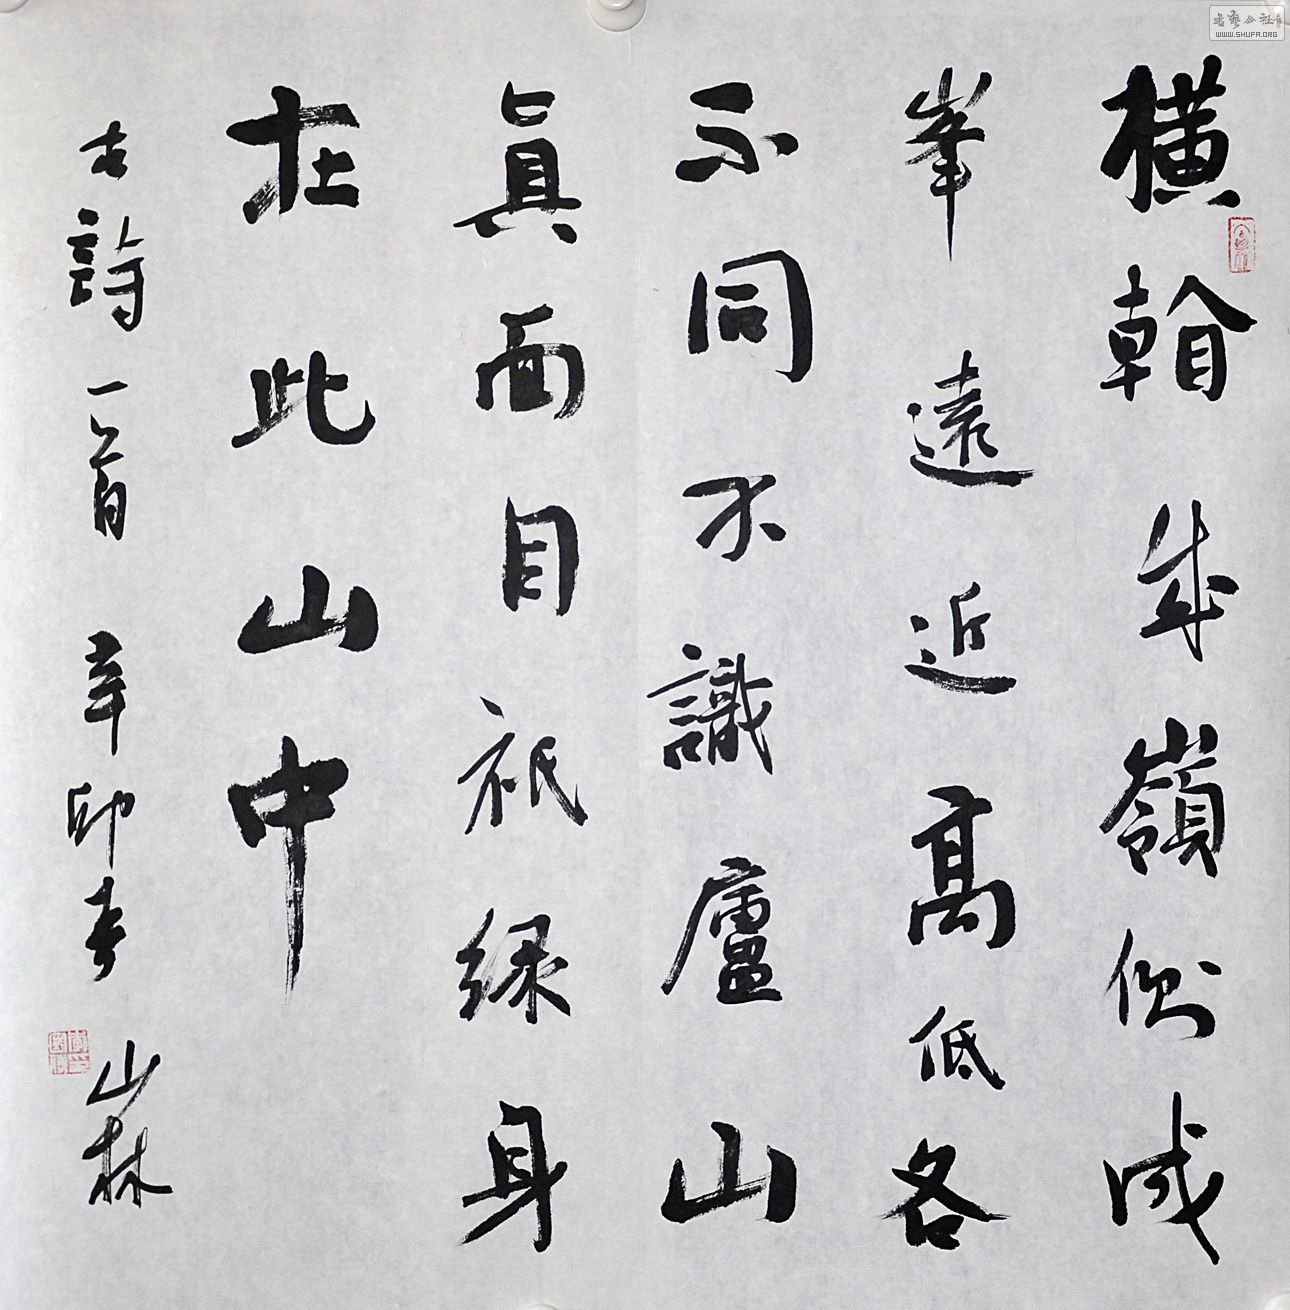 橫看成嶺側成
峯遠近高低各
不同不識廬山
眞面目祇緣身
在此山中
古詩一首 辛卯春 山林
書藝公社
WWW.SHUFA.ORG